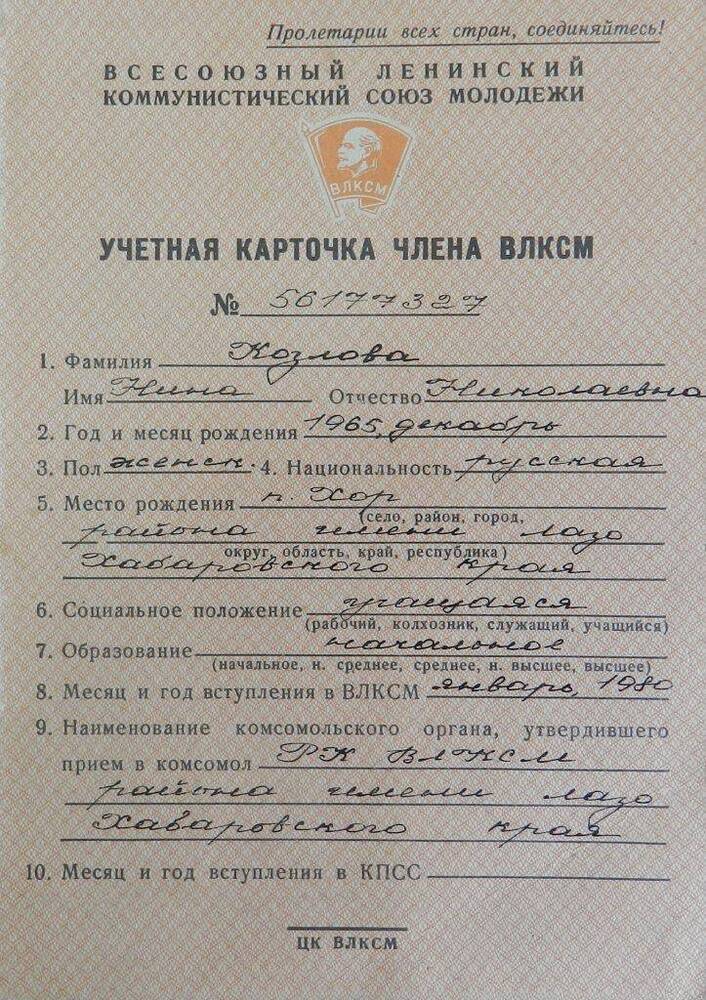 Пролетарии всех стран, соединяйтесь!
ВСЕСОЮЗНЫЙ ЛЕНИНСКИЙ
КОММУНИСТИЧЕСКИЙ СОЮЗ МОЛОДЕЖИ
ВЛКСМ
УЧЕТНАЯ КАРТОЧКА ЧЛЕНА ВЛКСМ
№ 56177327
1. Фамилия Козлова
Имя Нина Отчество Николаевна
2. Год и месяц рождения 1965, декабрь
3. Пол женск. 4. Национальность русская
5. Место рождения п. Хор
(село, район, город,
района имени Лазо
округ, область, край, республика)
Хабаровского края
6. Социальное положение учащаяся
(рабочий, колхозник, служащий, учащийся)
7. Образование начальное
(начальное, н. среднее, среднее, н. высшее, высшее)
8. Месяц и год вступления в ВЛКСМ январь, 1980
9. Наименование комсомольского органа, утвердившего
прием в комсомол РК ВЛКСМ
района имени Лазо
Хабаровского края
10. Месяц и год вступления в КПСС
ЦК ВЛКСМ